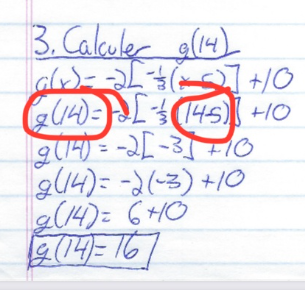 3. Calculer g(14)
g(x) = -2[-1/3(x-5)] + 10
g(14) = -2[-1/3(14-5)] + 10
g(14) = -2[-3] + 10
g(14) = -2(-3) + 10
g(14) = 6 + 10
g(14) = 16